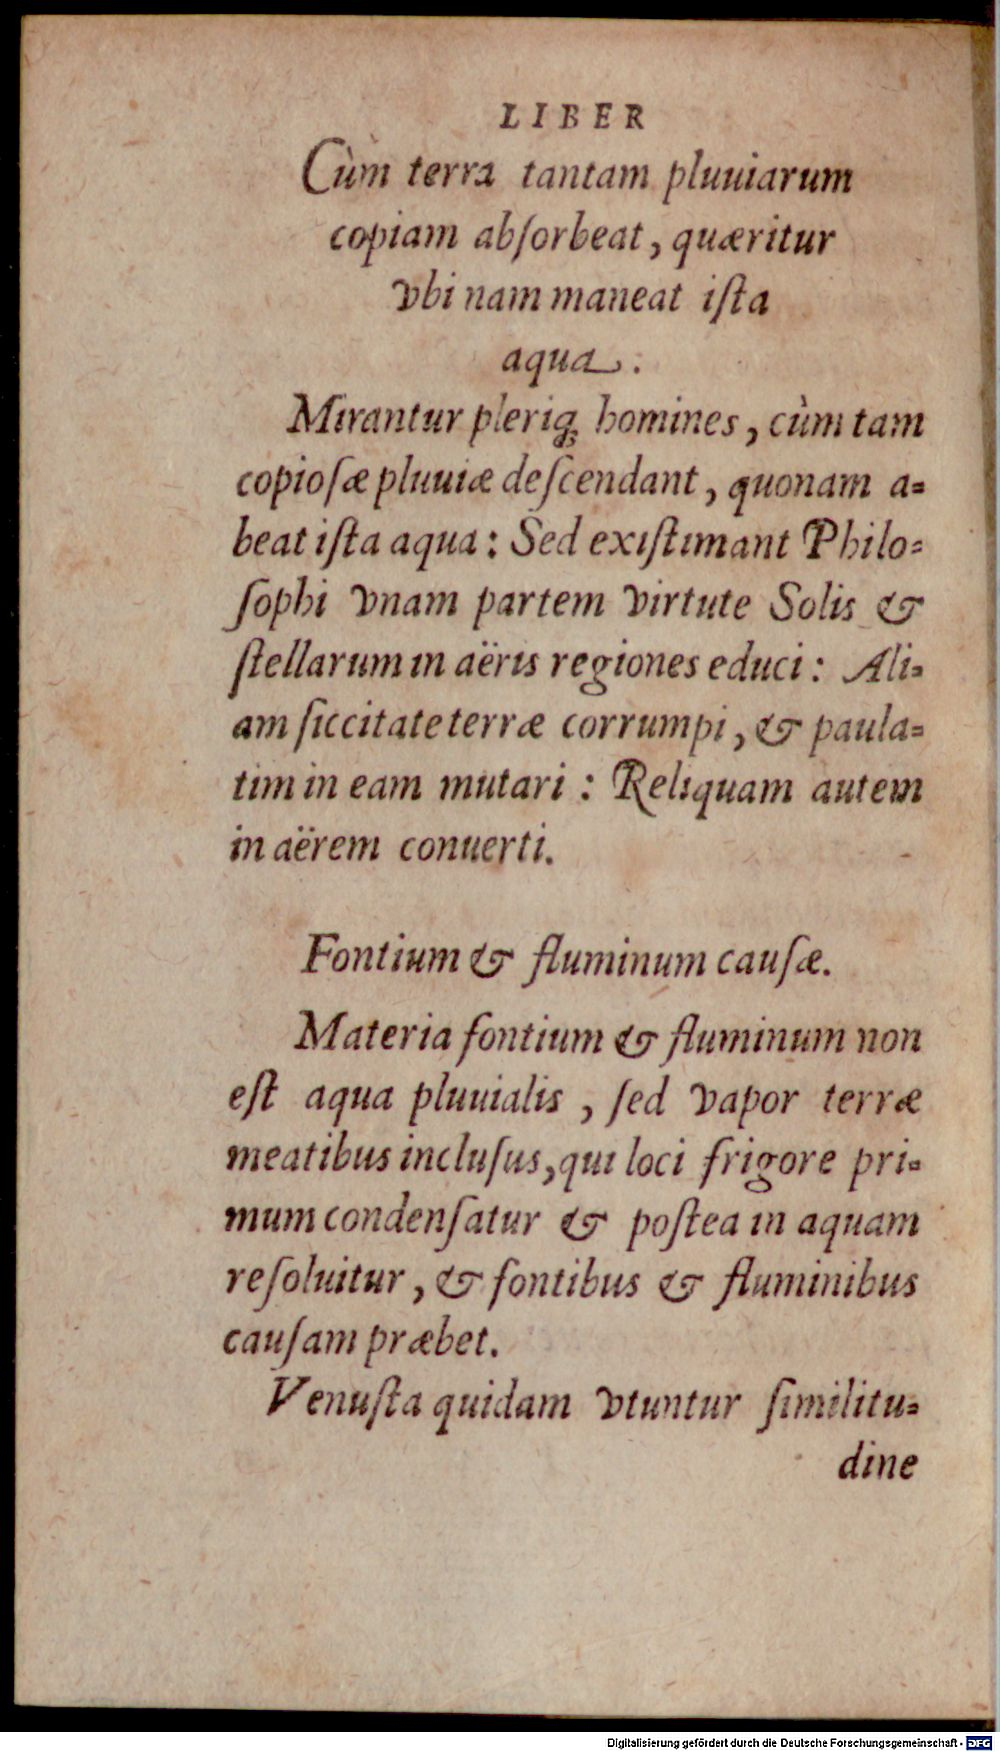 LIBER
Cùm terra tantam pluuiarum
copiam abſorbeat, quæritur
vbi nam maneat iſta
aqua.
Mirantur pleriq; homines, cùm tam
copioſæ pluuiæ deſcendant, quonam a=
beat iſta aqua: Sed exiſtimant Philo=
ſophi vnam partem virtute Solis &
ſtellarum in aëris regiones educi: Ali=
am ſiccitate terræ corrumpi, & paula=
tim in eam mutari: Reliquam autem
in aërem conuerti.
Fontium & fluminum cauſæ.
Materia fontium & fluminum non
eſt aqua pluuialis, ſed vapor terræ
meatibus incluſus, qui loci frigore pri=
mum condenſatur & poſtea in aquam
reſoluitur, & fontibus & fluminibus
cauſam præbet.
Venuſta quidam vtuntur ſimilitu=
dine
Digitalisierung gefördert durch die Deutsche Forschungsgemeinschaft - DFG